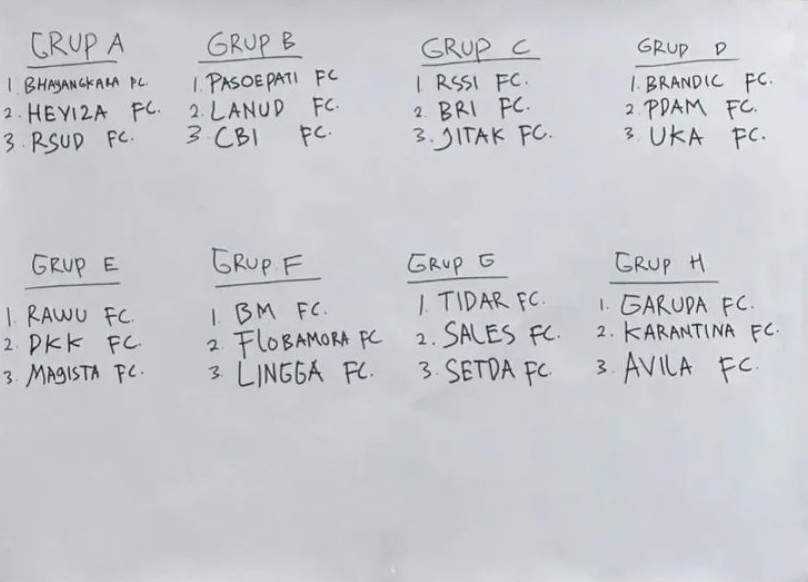 GRUP A
1. BHAYANGKARA FC.
2. HEYIZA FC.
3. RSUD FC.
GRUP B
1. PASOEPATI FC
2. LANUD FC.
3. CBI FC.
GRUP C
1. RSSI FC.
2. BRI FC.
3. JITAK FC.
GRUP D
1. BRANDIC FC.
2. PDAM FC.
3. UKA FC.
GRUP E
1. RAWU FC.
2. DKK FC.
3. MAGISTA FC.
GRUP F
1. BM FC.
2. FLOBAMORA FC
3. LINGGA FC.
GRUP G
1. TIDAR FC.
2. SALES FC.
3. SETDA FC.
GRUP H
1. GARUDA FC.
2. KARANTINA FC.
3. AVILA FC.